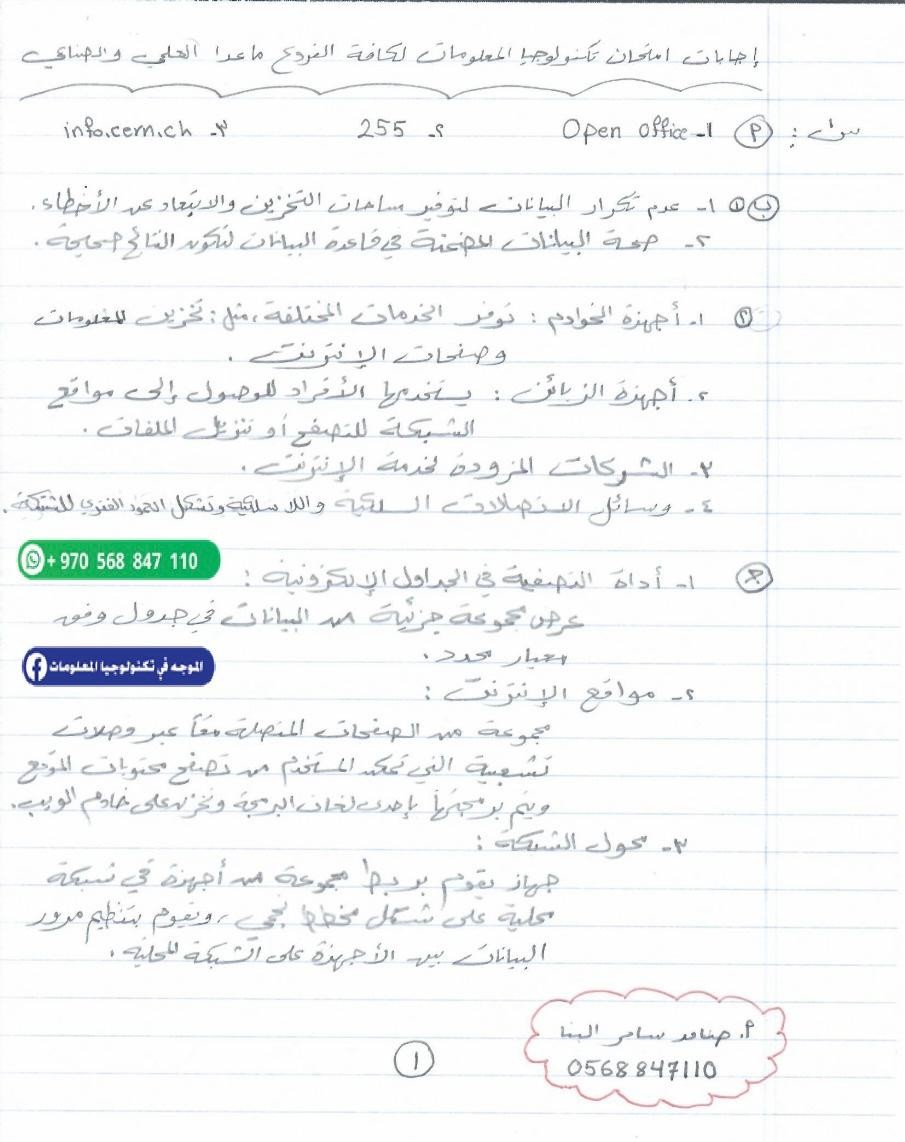 إجابات امتحان تكنولوجيا المعلومات لكافة الفروع ماعدا العلمي والصناعي
سؤال : أ ١- Open Office ٢- 255 ٣- info.cern.ch
ب ١ ١- عدم تكرار البيانات لتوفير مساحات التخزين والابتعاد عن الأخطاء.
٢- صحة البيانات المضمنة في قاعدة البيانات لتكون النتائج صحيحة.
٢ ١- أجهزة الخوادم : توفر الخدمات المختلفة، مثل : تخزين المعلومات
وصفحات الإنترنت .
٢- أجهزة الزبائن : يستخدمها الأفراد للوصول إلى مواقع
الشبكة للتصفح أو تنزيل الملفات .
٣- الشركات المزودة لخدمة الإنترنت .
٤- وسائل الاتصالات السلكية واللاسلكية وتشكل العمود الفقري للشبكة .
+ 970 568 847 110
ج ١- أداة التصفية في الجداول الإلكترونية :
عرض مجموعة جزئية من البيانات في جدول وفق
معيار محدد .
الموجه في تكنولوجيا المعلومات
٢- مواقع الإنترنت :
مجموعة من الصفحات المتصلة معاً عبر وصلات
تشعبية التي تمكن المستخدم من تصفح محتويات الموقع
ويتم برمجتها بإحدى لغات البرمجة وتخزن على خادم الويب .
٣- محول الشبكة :
جهاز يقوم بربط مجموعة من أجهزة في شبكة
محلية على شكل مخطط نجمي ، ويقوم بتنظيم مرور
البيانات بين الأجهزة على الشبكة المحلية .
أ. سامر البنا
0568847110
١